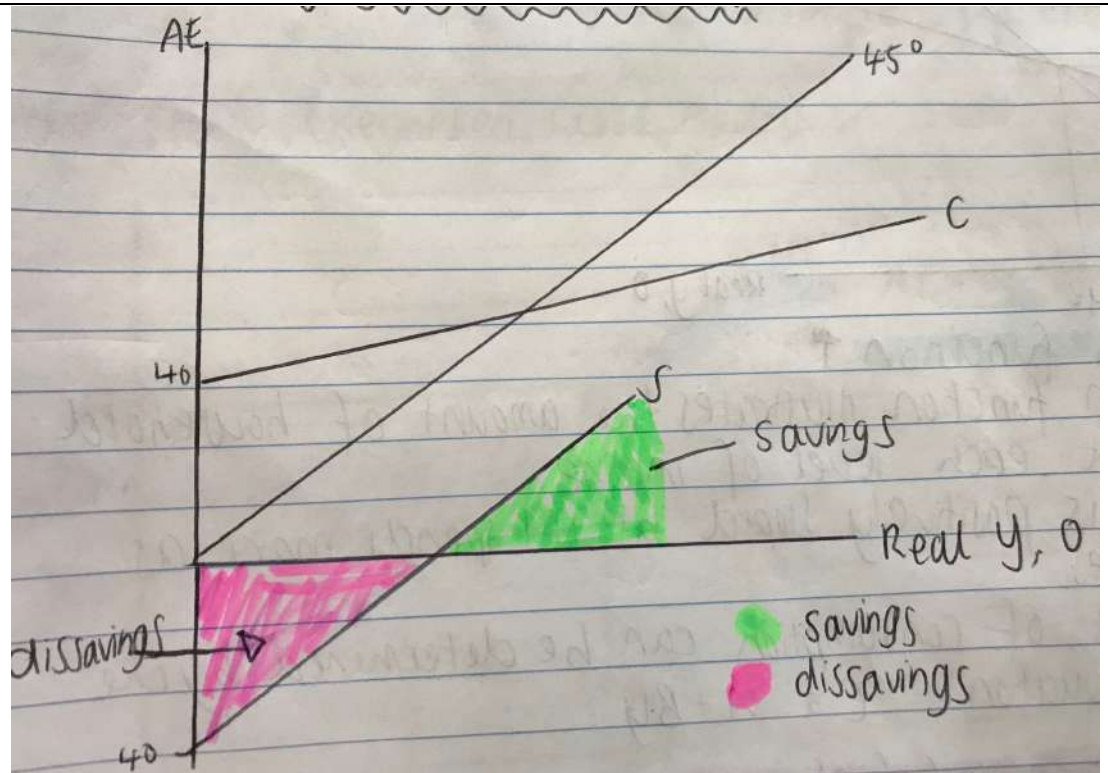 AE
45°
C
40
S
savings
Real Y, O
dissavings
savings
dissavings
40